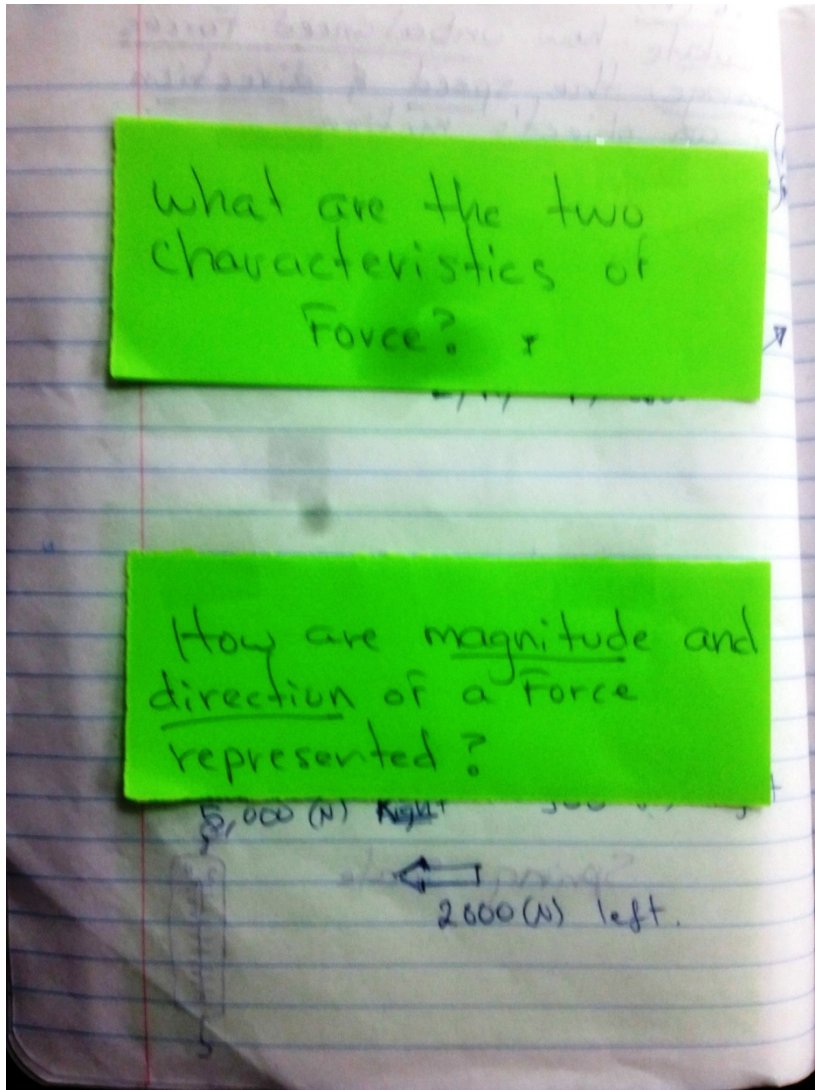 What are the two
characteristics of
Force?
How are magnitude and
direction of a Force
represented?
5,000 (N) Right
2000 (N) left.